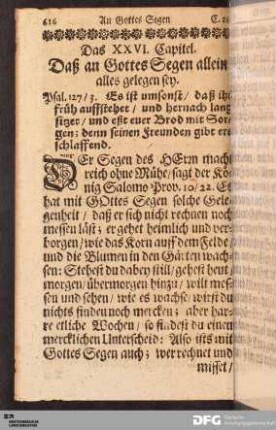 616 An Gottes Segen C. 26
Das XXVI. Capitel.
Daß an Gottes Segen allein
alles gelegen sey.
Psal. 127/3. Es ist umsonst/ daß ihr
früh auffstehet/ und hernach lang
sitzet/ und esset euer Brod mit Sor-
gen: denn seinen Freunden gibt ers
schlaffend.
DEr Segen des HErrn macht
reich ohne Mühe/ sagt der Kö-
nig Salomo Prov. 10/22. Es
hat mit GOttes Segen solche Gele-
genheit/ daß er sich nicht rechnen noch
messen läst; er gehet heimlich und ver-
borgen/ wie das Korn auff dem Felde/
und die Blumen in den Gärten wach-
sen: Stehest du dabey still/ gehest heut/
morgen/ übermorgen hinzu/ wilt mes-
sen und sehen/ wie es wachse/ wirst du
nichts finden noch mercken; aber har-
re etliche Wochen/ so findest du einen
mercklichen Unterscheid: Also ists mit
Gottes Segen auch; wer rechnet und
misset/
DFG